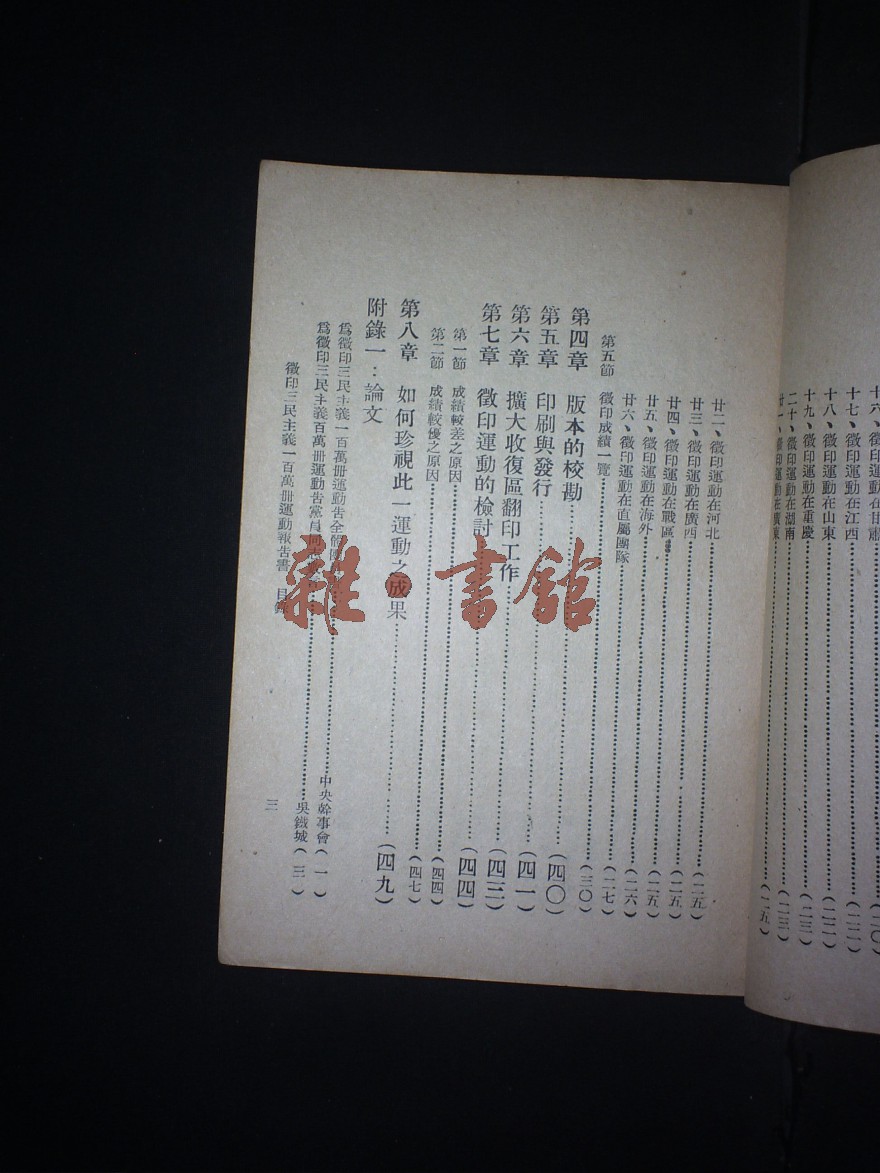 十六、徵印運動在甘肅
十七、徵印運動在江西……(二二)
十八、徵印運動在山東……(二二)
十九、徵印運動在重慶……(二三)
二十、徵印運動在湖南……(二三)
廿一、徵印運動在廣東……(二五)
廿二、徵印運動在河北……(二五)
廿三、徵印運動在廣西……(二五)
廿四、徵印運動在戰區……(二五)
廿五、徵印運動在海外……(二六)
廿六、徵印運動在直屬團隊……(二七)
第五節 徵印成績一覽……(三〇)
第四章 版本的校勘……(四〇)
第五章 印刷與發行……(四一)
第六章 擴大收復區翻印工作……(四三)
第七章 徵印運動的檢討……(四四)
第一節 成績較差之原因……(四四)
第二節 成績較優之原因……(四七)
第八章 如何珍視此一運動之成果……(四九)
附錄一：論文
爲徵印三民主義一百萬冊運動告全體團……中央幹事會(一)
爲徵印三民主義百萬冊運動告黨員同志……吳鐵城(三)
徵印三民主義一百萬冊運動報告書 目錄
三
雜·書館